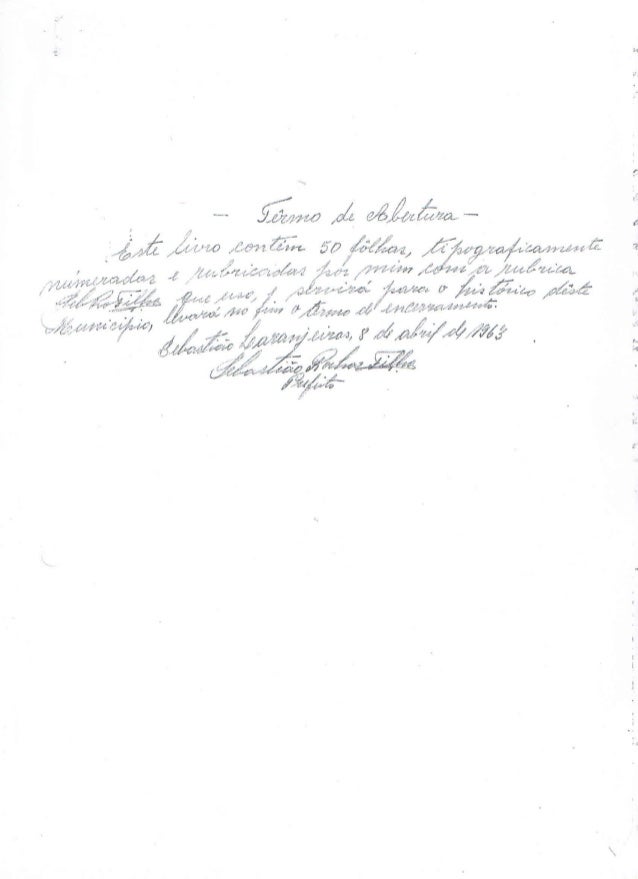 — Têrmo de Abertura —
Êste livro contêm 50 fôlhas, tipograficamente
númeradas e rubricadas por mim com a rubrica
Seb Ro Filho que uso, e servirá para o histórico dêste
Município, levará no fim o têrmo de encerramento.
Sebastião Laranjeiras, 8 de abril de 1963
Sebastião Rocha Filho
Prefeito